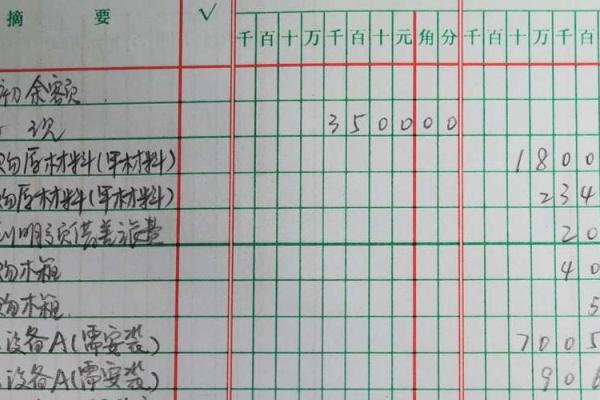 摘 要 √ 千百十万千百十元角分 千百十万千百
初余额
现 350000
购原材料(甲材料) 1800
购原材料(甲材料) 234
明预借差旅费 20
购木箱 40
购木箱 5
设备A(需安装) 7005
设备A(需安装) 90